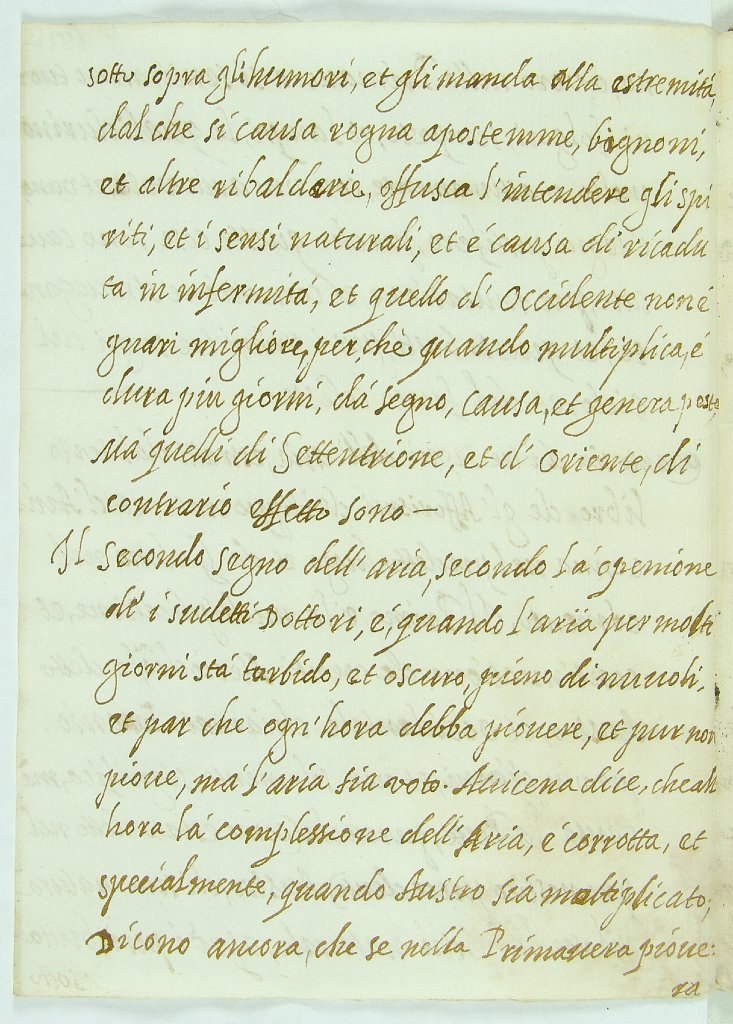 sotto sopra gli humori, et gli manda alla estremitá,
dal che si causa rogna apostemme, bognoni,
et altre ribalderie, offusca l'intendere gli spi
riti, et i sensi naturali, et é causa di ricadu
ta in infermita, et quello d' Occidente non é
guari migliore, perche quando multiplica, é
dura piu giorni, dá segno, causa, et genera peste,
Má quelli di Settentrione, et d' Oriente, di
contrario effetto sono —
Il secondo segno dell'aria, secondo la openione
de i sudetti Dottori, é, quando l'aria per molti
giorni stá torbido, et oscuro, pieno di nuuoli,
et par che ogn'hora debba piouere, et pur non
pioue, má l'aria sia voto. Auicena dice, che all
hora la complessione dell'Aria, é corrotta, et
specialmente, quando Austro sia moltiplicato;
Dicono ancora, che se nella Primauera pioue:
ra